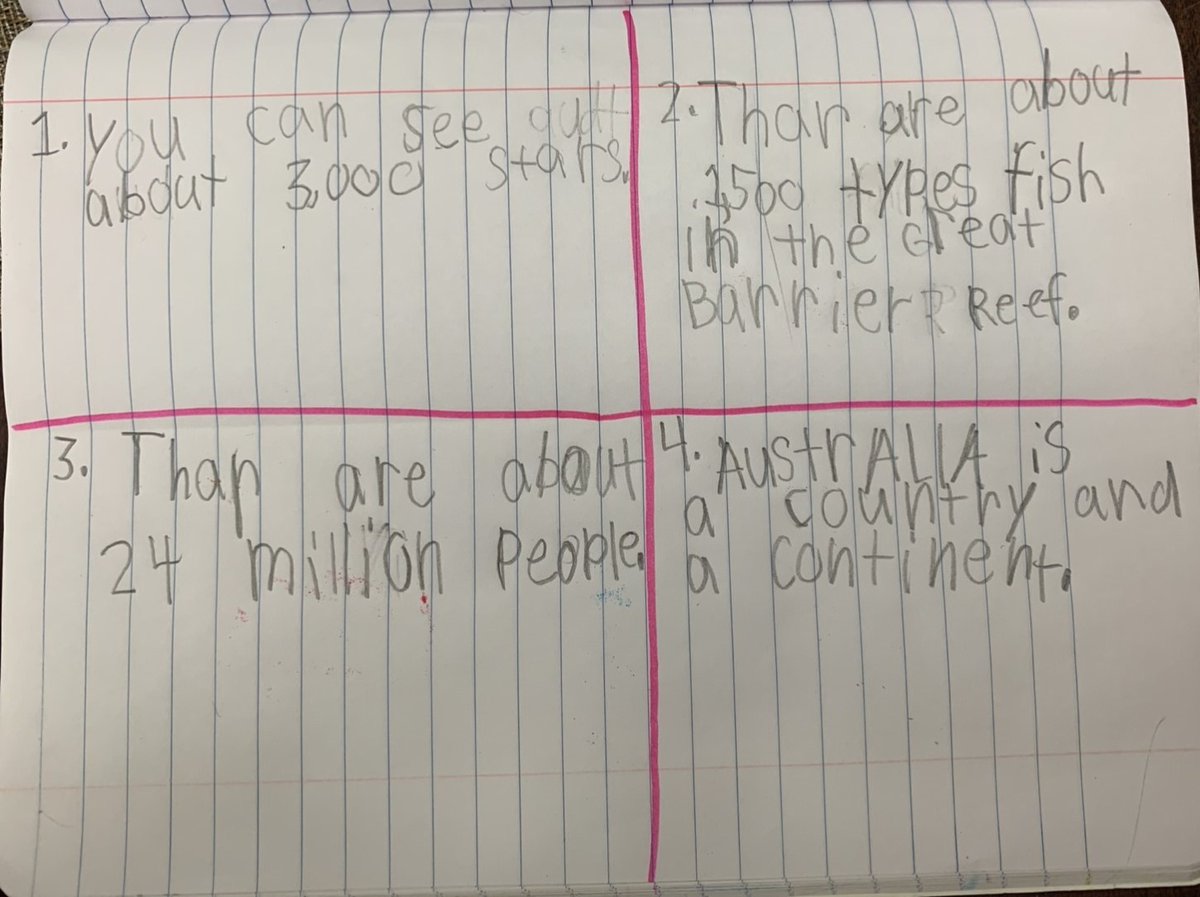 1. you can see
about 3,000 stars.
2. Thar are about
1,500 types fish
in the Great
Barrier Reef.
3. Thar are about
24 million People.
4. AustrALIA is
a country and
a continent.